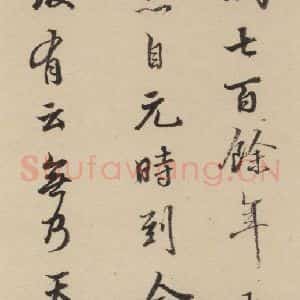 七百餘年
自元時到今
有云無乃天
Shufawang.CN